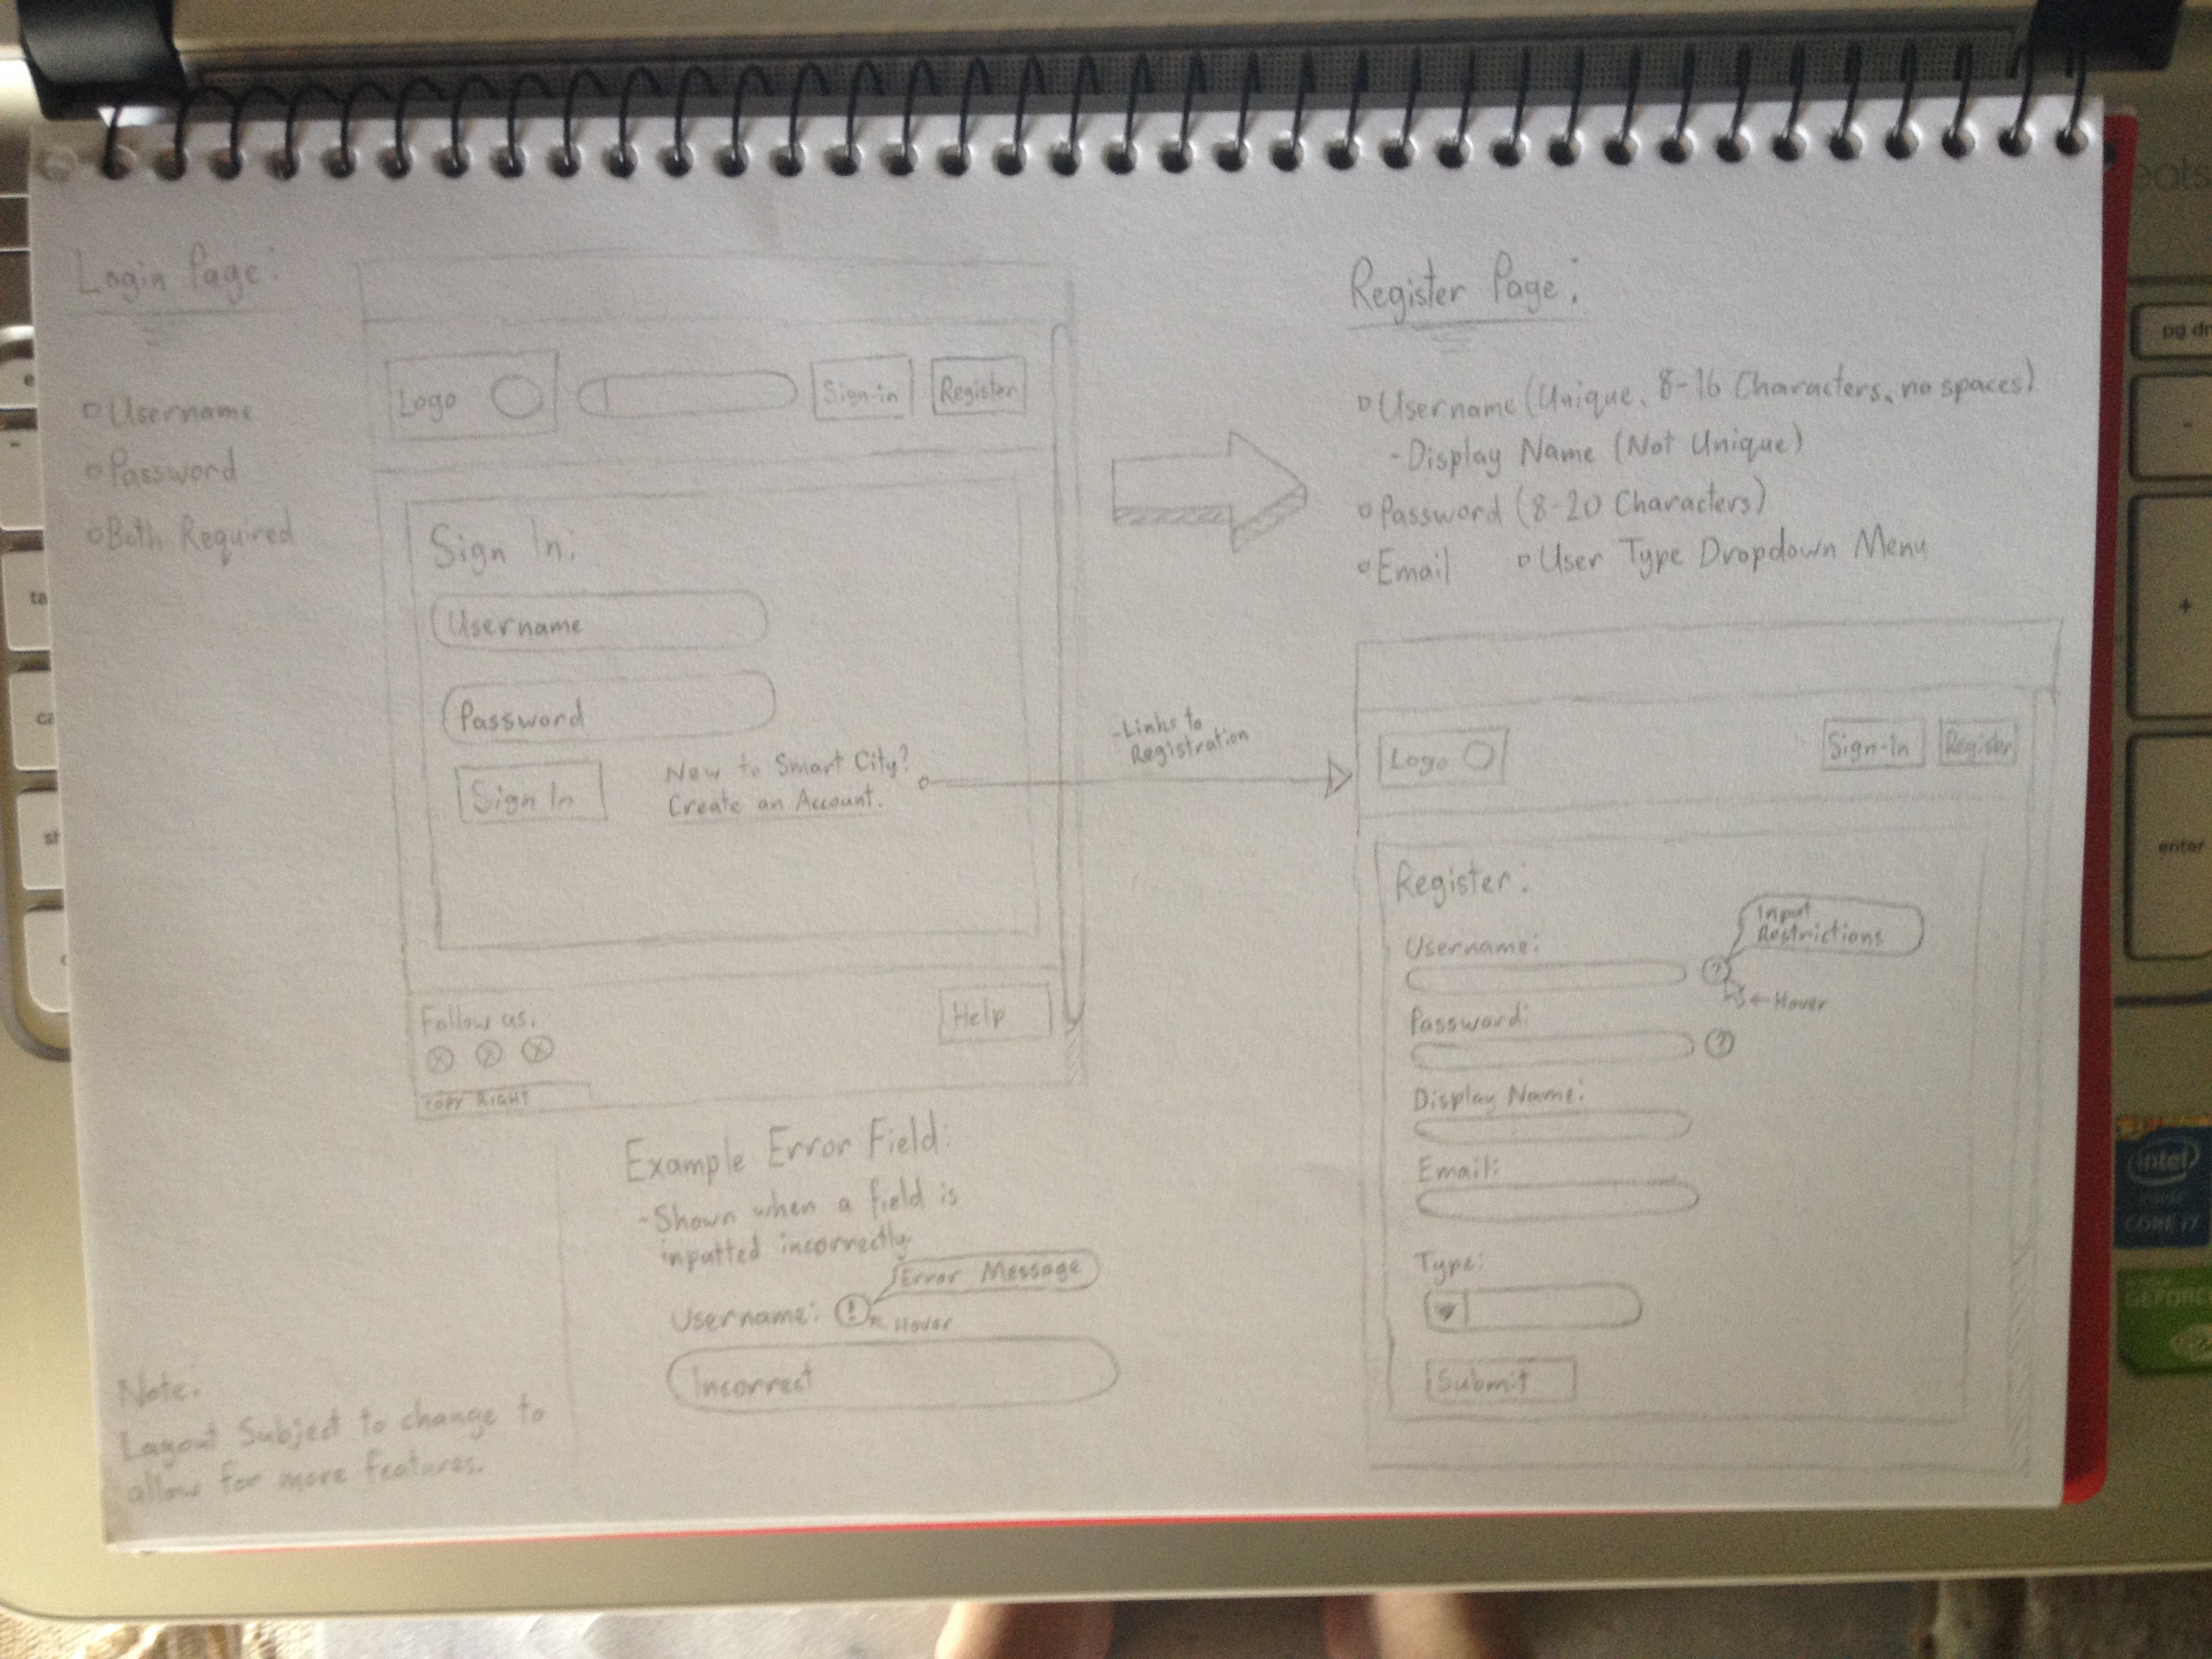 Login Page:
▫Username
▫Password
▫Both Required
Logo
Sign in
Register
Sign In:
Username
Password
Sign In
New to Smart City?
Create an Account.
Follow us:
Help
COPY RIGHT
-Links to
Registration
Example Error Field:
-Shown when a field is
inputted incorrectly.
Username: !
Hover
Error Message
Incorrect
Note:
Layout Subject to change to
allow for more features.
Register Page:
▫Username (Unique, 8-16 Characters, no spaces)
-Display Name (Not Unique)
▫Password (8-20 Characters)
▫Email ▫User Type Dropdown Menu
Logo
Sign-In
Register
Register:
Username:
?
Input
Restrictions
Hover
Password:
?
Display Name:
Email:
Type:
Submit
enter
+
-
pg dn
intel
CORE i7
GEFORCE